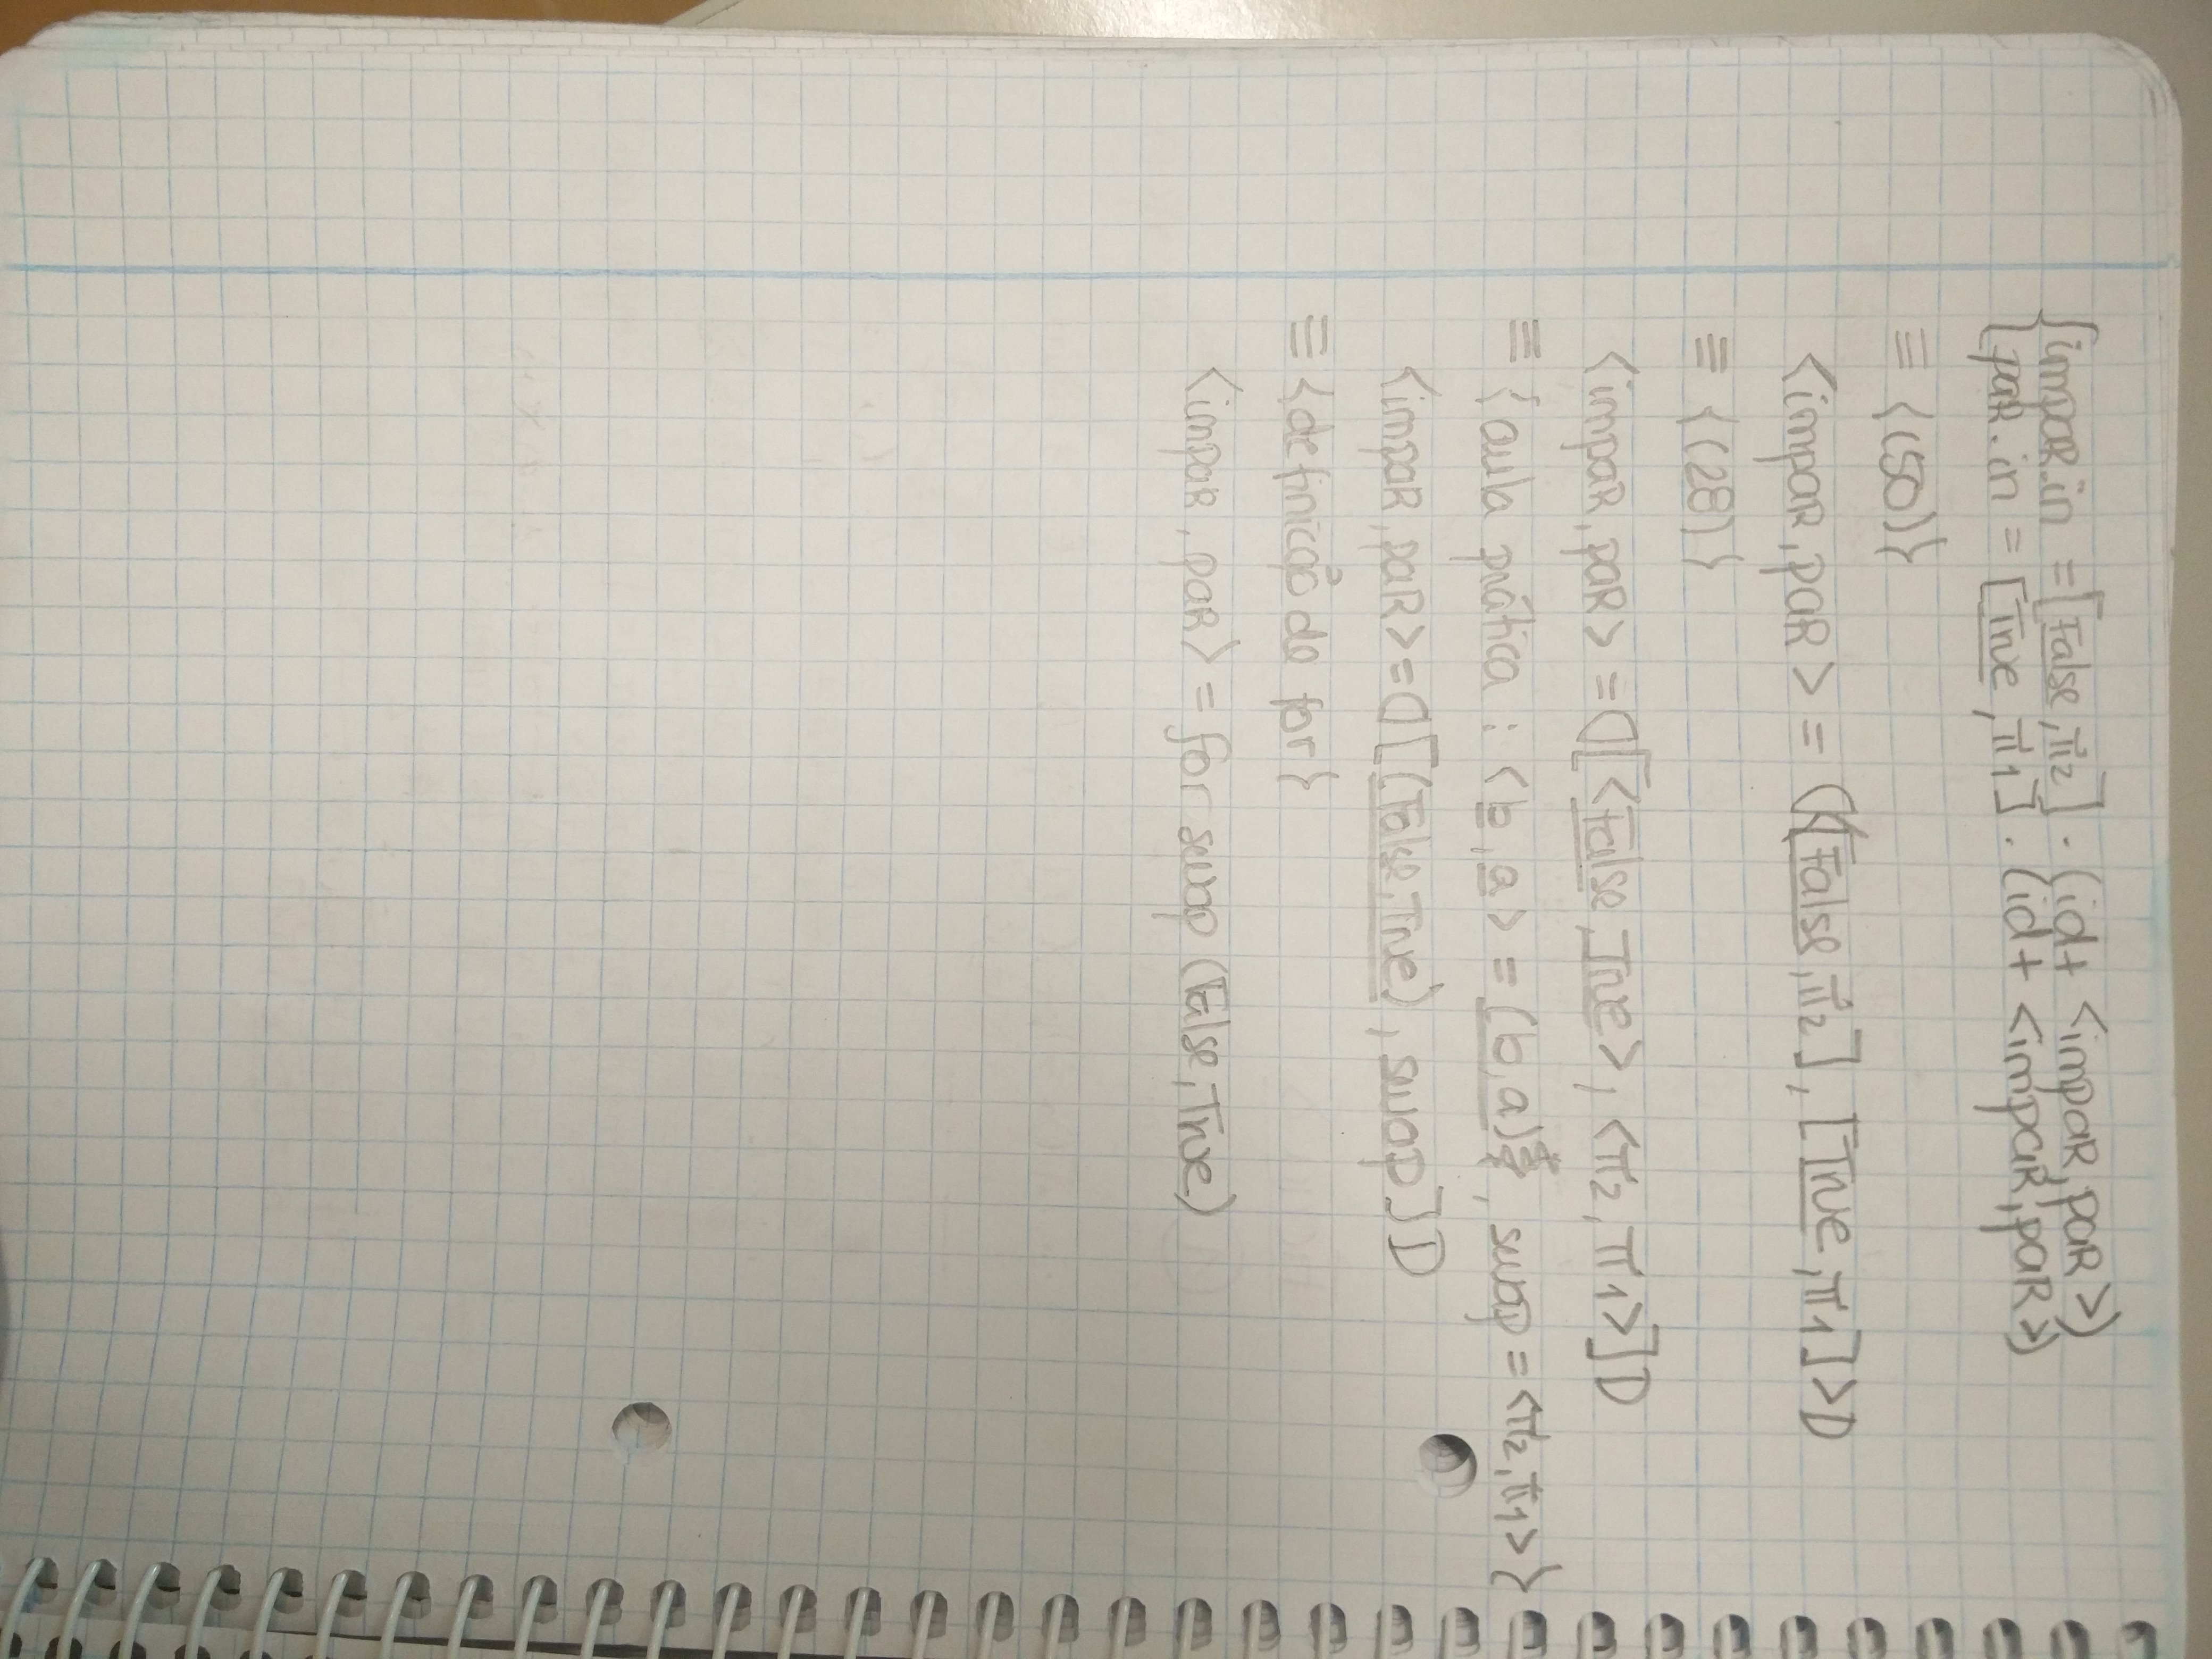 {impar.in = [False, π2] . (id + <impar, par>)
{par.in = [True, π1] . (id + <impar, par>)
≡ {(50)}
<impar, par> = ⦇<[False, π2], [True, π1]>⦈
≡ {(28)}
<impar, par> = ⦇[<False, True>, <π2, π1>]⦈
≡ {aula prática : <b, a> = (b, a), swap = <π2, π1>}
<impar, par> = ⦇[(False, True), swap]⦈
≡ {definição de for}
<impar, par> = for swap (False, True)